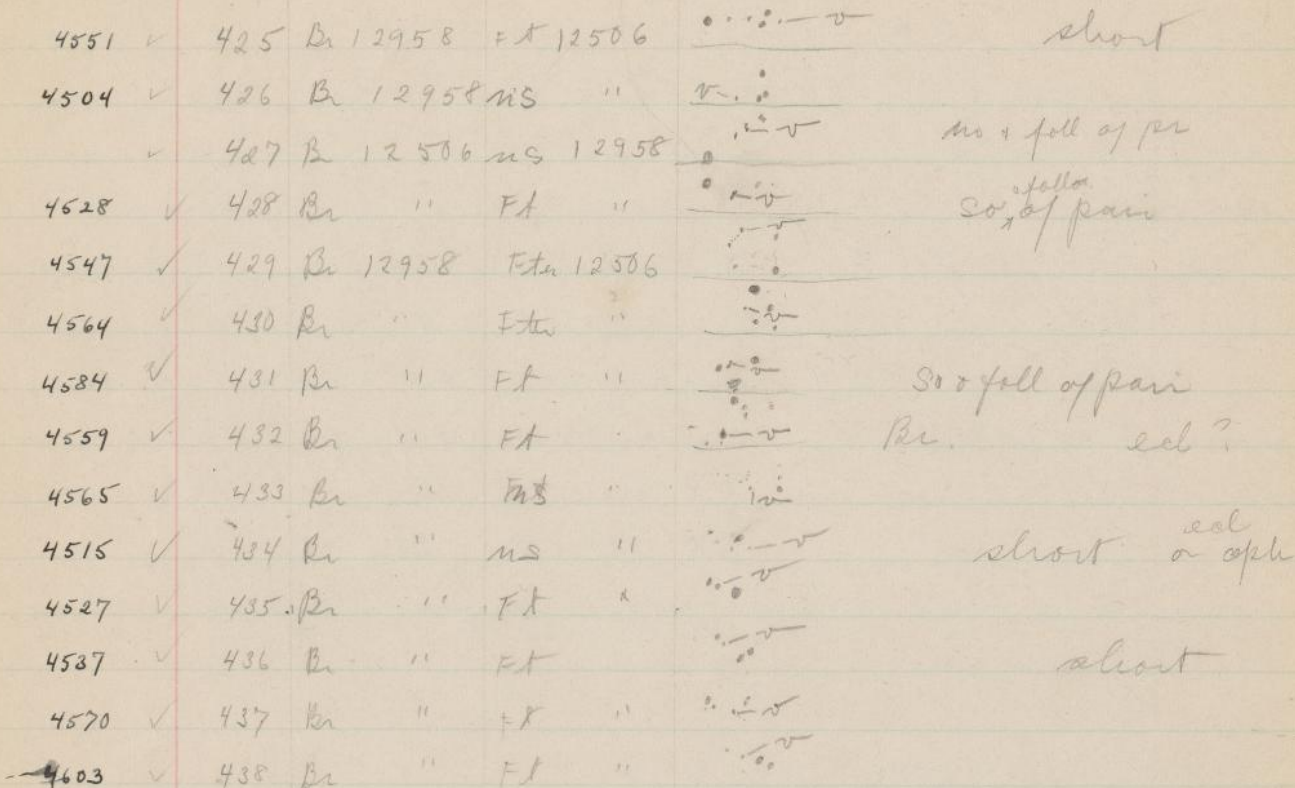 4551 ✓ 425 Br 12958 Ft 12506 v short
4504 ✓ 426 Br 12958 ns " v
✓ 427 Br 12506 ns 12958 v no * foll of pr
4528 ✓ 428 Br " Ft " v So * follo. of pair
4547 ✓ 429 Br 12958 Fter 12506 v
4564 ✓ 430 Br " Fter " v
4584 ✓ 431 Br " Ft " v So * foll of pair
4559 ✓ 432 Br " Ft " v Br. ecl ?
4565 ✓ 433 Br " " v
4515 ✓ 434 Br " ns " v short ecl or ceph
4527 ✓ 435. Br " Ft " v
4537 ✓ 436 Br " Ft v short
4570 ✓ 437 Br " Ft " v
4603 ✓ 438 Br " Ft " v